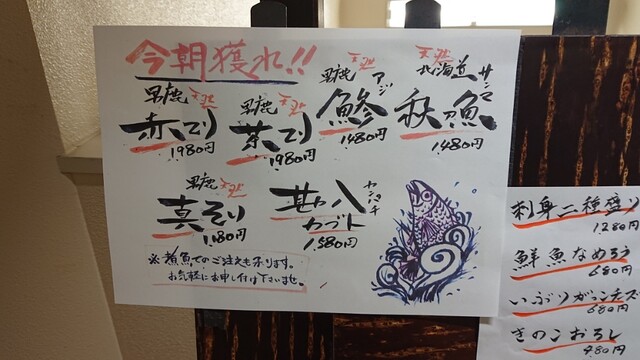 今朝獲れ!!
男鹿 天然
赤ぞり
1,980円
男鹿 天然
茶ぞり
1,980円
男鹿 アジ
鯵
1,480円
天然
北海道 サンマ
秋魚
1,480円
男鹿 天然
真ぞり
1,180円
カンパチ
勘八
カブト
1,580円
※煮魚でのご注文も承ります。
お気軽にお申し付け下さいませ。
刺身二種盛り
1280円
鮮魚なめろう
680円
いぶりがっこチーズ
680円
きのこおろし
980円